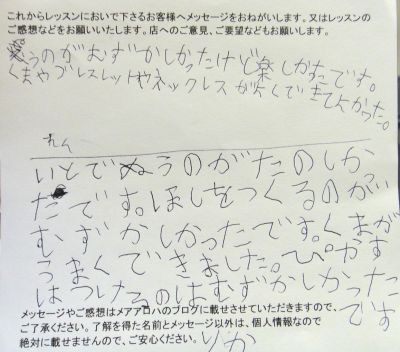 これからレッスンにおいで下さるお客様へメッセージをおねがいします。又はレッスンの
ご感想などをお願いいたします。店へのご意見、ご要望などもお願いします。
ぬうのがむずかしかったけど楽しかったです。
くまやブレスレットやネックレスができてよかった。
れん
いとでぬうのがたのしか
たです。ほしをつくるのが
むずかしかったです。くまが
うまくできました。ぴかす
はつけるのはむずかしかった
です
メッセージやご感想はメアアロハのブログに載せさせていただきますので、
ご了承ください。了解を得た名前とメッセージ以外は、個人情報なので
絶対に載せませんので、ご安心ください。
りか